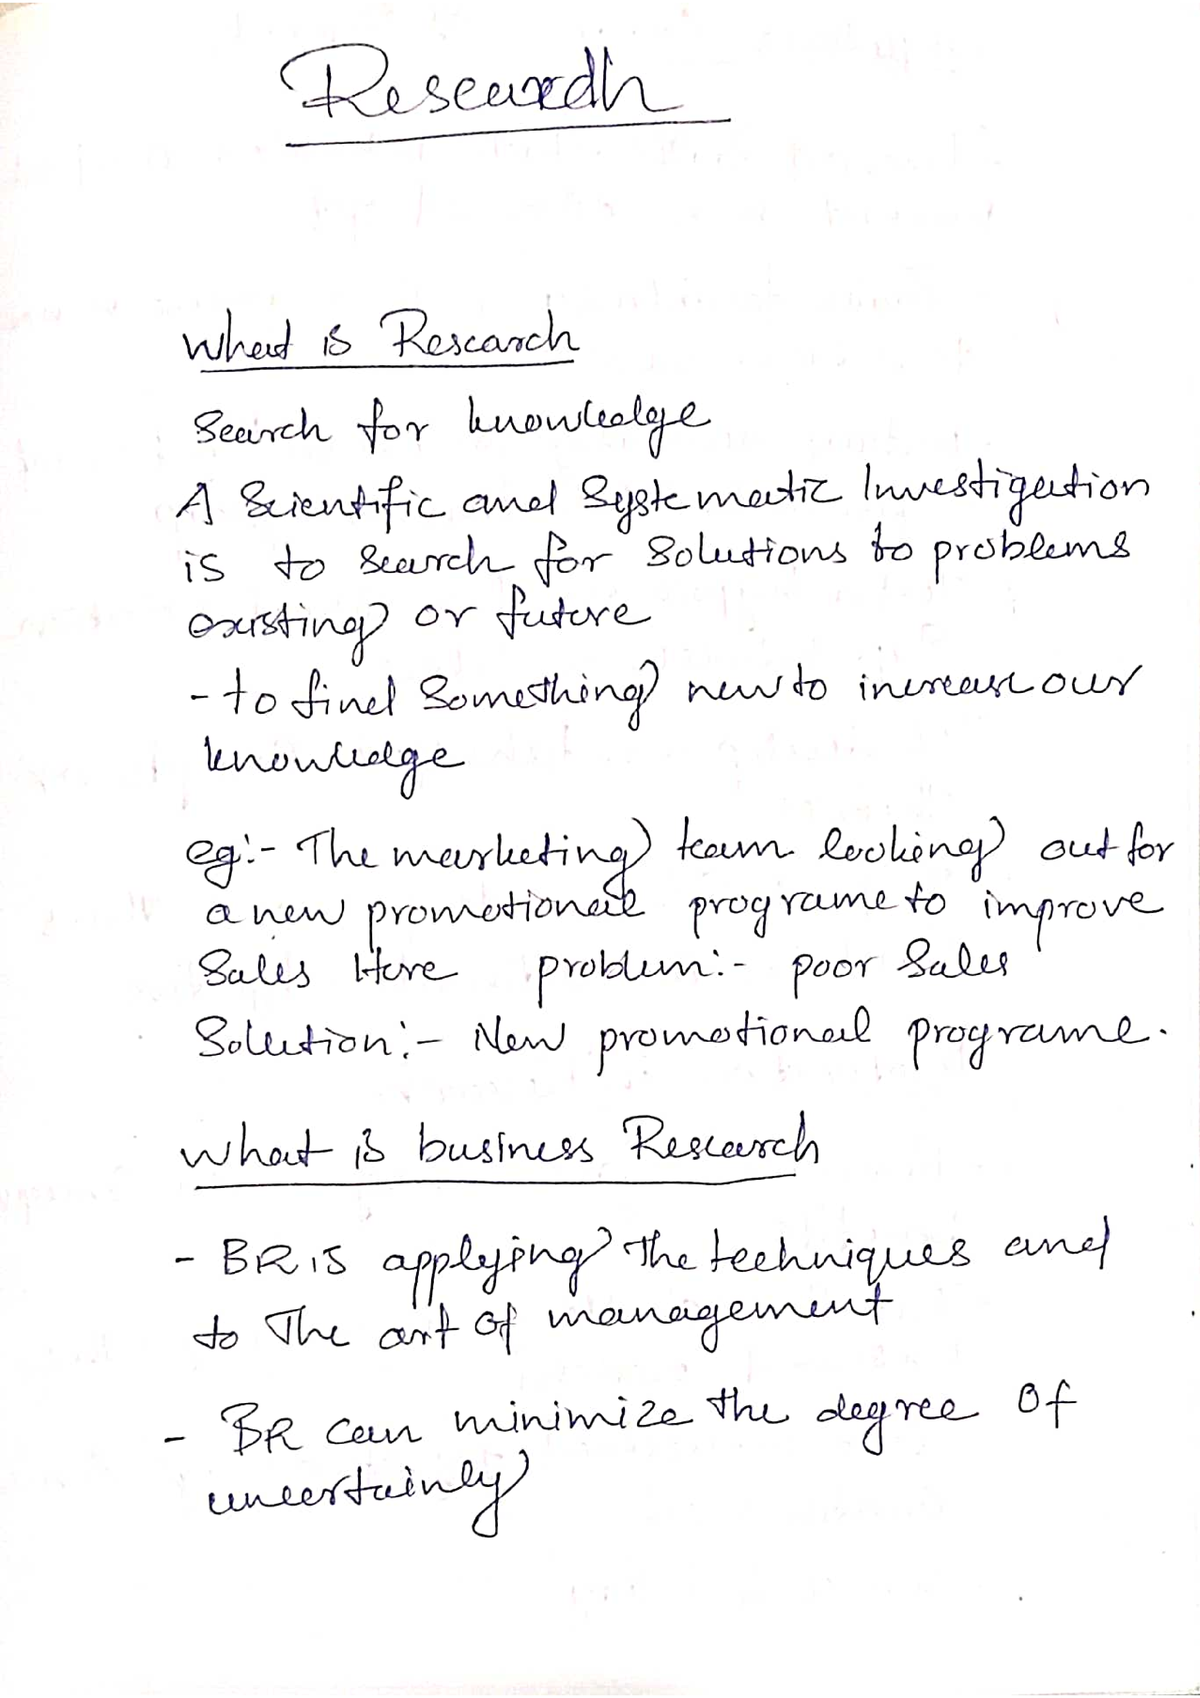 Research
What is Research
Search for knowledge
A Scientific and Systematic Investigation
is to search for solutions to problems
existing or future
- to find Something new to increase our
knowledge
eg:- The marketing team looking out for
a new promotional programe to improve
Sales Here problem:- poor Sales
Solution:- New promotional programe.
What is business Research
- BR is applying the techniques and
to The art of management
- BR can minimize the degree of
uncertainly